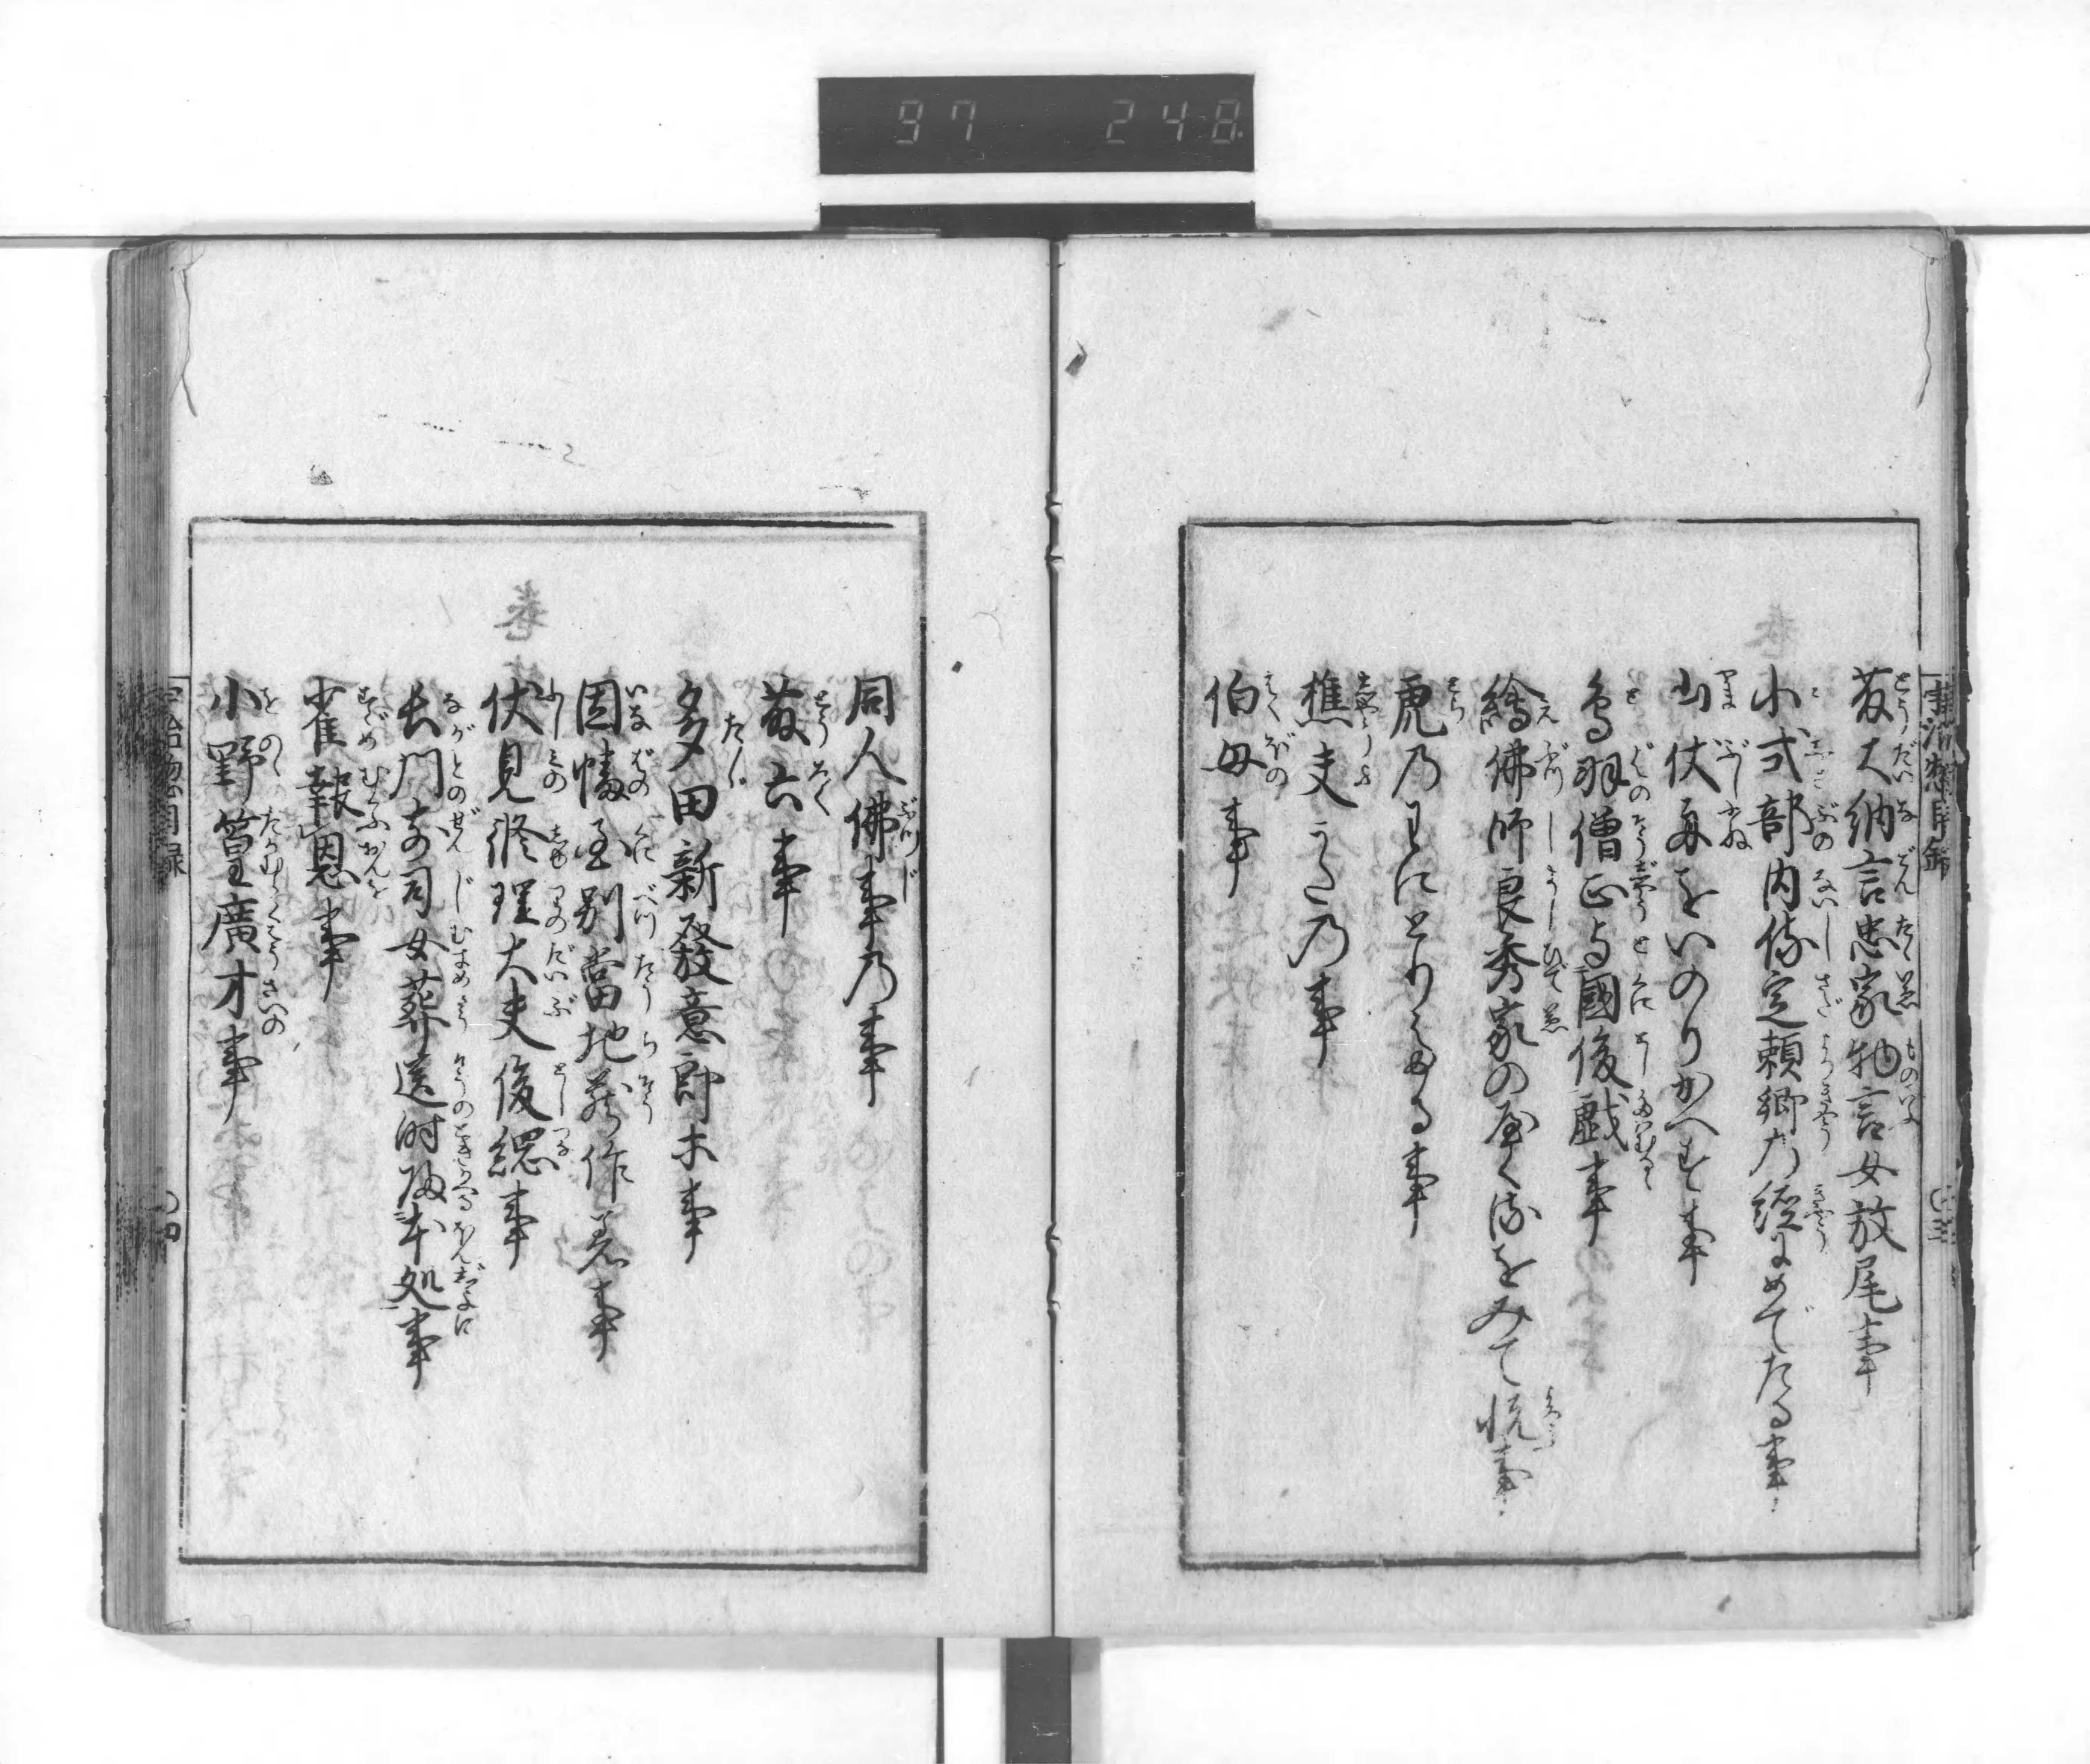 97 248
藤大納言忠家物言女放屁事
小式部内侍定頼卿乃経にめでたる事
山伏舟をいのりかへす事
鳥羽僧正与國俊戯事
繪佛師良秀家の焼くるをみて悦事
虎乃わにとりたる事
樵夫うた乃事
伯母事
同人佛事乃事
藤六事
多田新發意郎等事
因幡國別當地蔵作差事
伏見修理大夫俊綱事
長門前司女葬送時帰本処事
雀報恩事
小野篁廣才事
宇治物語目録
四